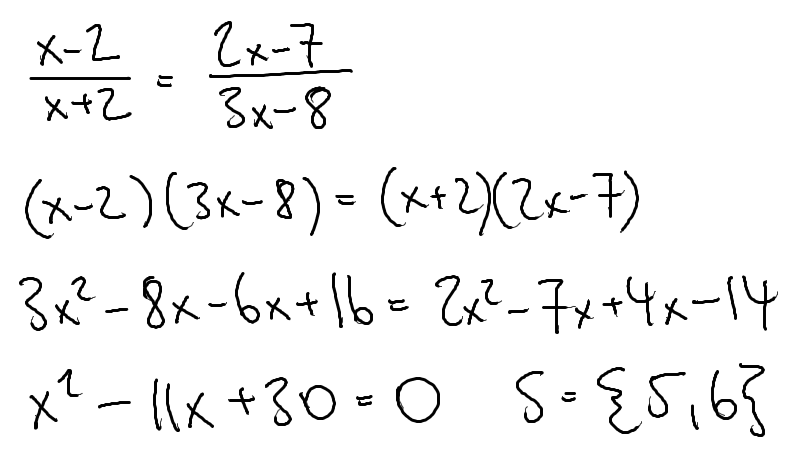 (x-2)/(x+2) = (2x-7)/(3x-8)
(x-2)(3x-8) = (x+2)(2x-7)
3x² - 8x - 6x + 16 = 2x² - 7x + 4x - 14
x² - 11x + 30 = 0 S = {5,6}